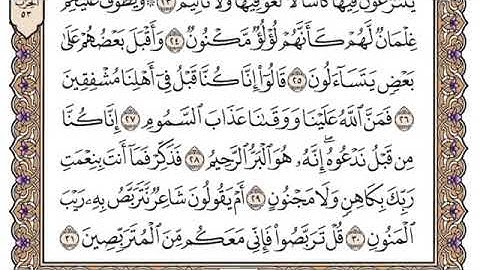 يَتَنَٰزَعُونَ فِيهَا كَأْسًا لَّا لَغْوٌ فِيهَا وَلَا تَأْثِيمٌ ٢٣ ۞ وَيَطُوفُ عَلَيْهِمْ
غِلْمَانٌ لَّهُمْ كَأَنَّهُمْ لُؤْلُؤٌ مَّكْنُونٌ ٢٤ وَأَقْبَلَ بَعْضُهُمْ عَلَىٰ
بَعْضٍ يَتَسَآءَلُونَ ٢٥ قَالُوٓا۟ إِنَّا كُنَّا قَبْلُ فِىٓ أَهْلِنَا مُشْفِقِينَ
٢٦ فَمَنَّ ٱللَّهُ عَلَيْنَا وَوَقَىٰنَا عَذَابَ ٱلسَّمُومِ ٢٧ إِنَّا كُنَّا
مِن قَبْلُ نَدْعُوهُ ۖ إِنَّهُۥ هُوَ ٱلْبَرُّ ٱلرَّحِيمُ ٢٨ فَذَكِّرْ فَمَآ أَنتَ بِنِعْمَتِ
رَبِّكَ بِكَاهِنٍ وَلَا مَجْنُونٍ ٢٩ أَمْ يَقُولُونَ شَاعِرٌ نَّتَرَبَّصُ بِهِۦ رَيْبَ
ٱلْمَنُونِ ٣٠ قُلْ تَرَبَّصُوا۟ فَإِنِّى مَعَكُم مِّنَ ٱلْمُتَرَبِّصِينَ ٣١
الحزب
٥٣